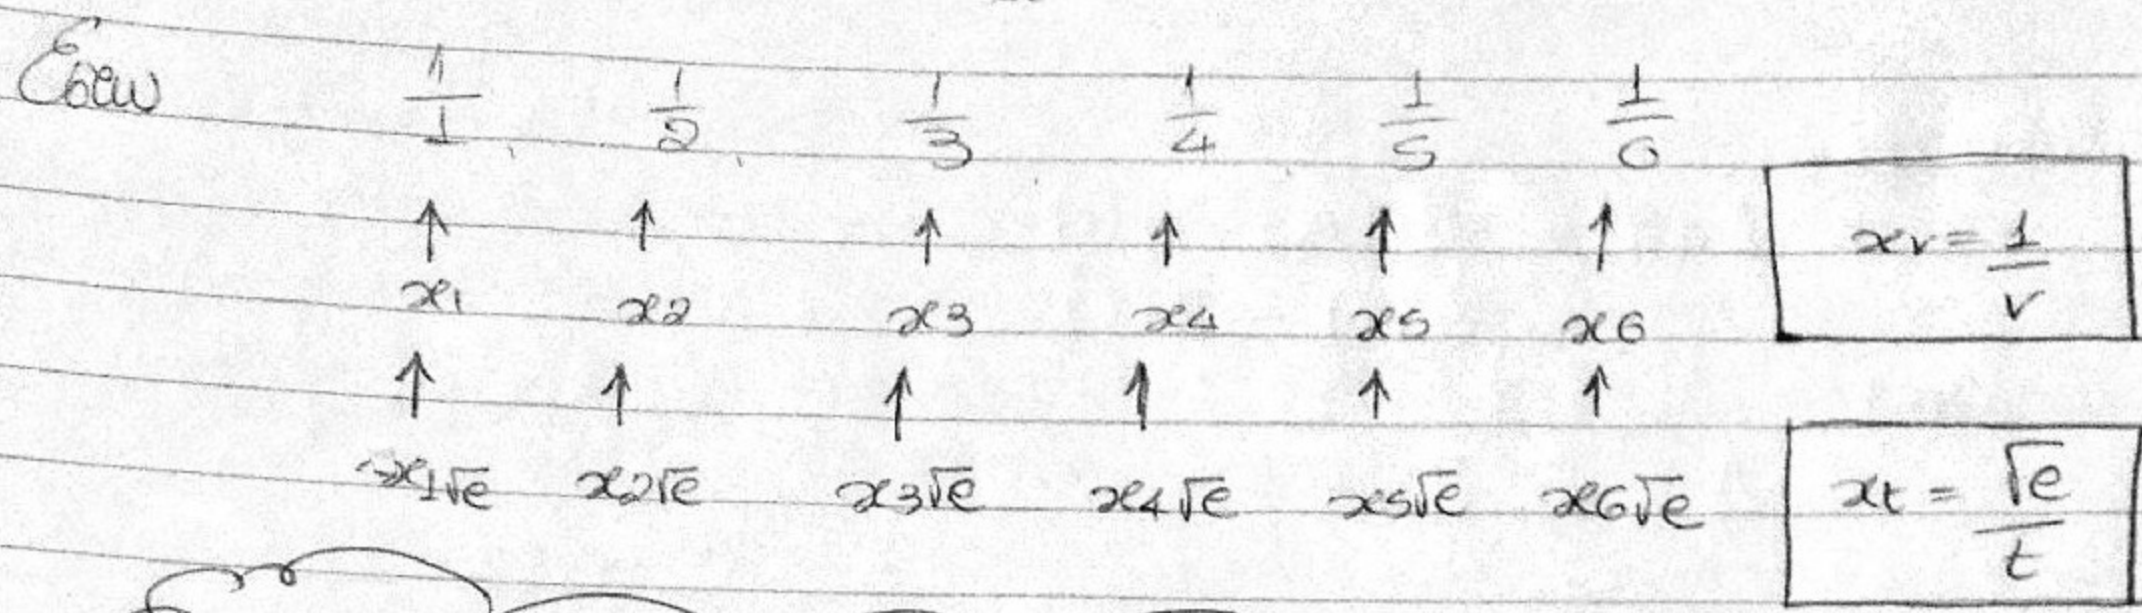 Εστω 1/1 1/2 1/3 1/4 1/5 1/6
↑ ↑ ↑ ↑ ↑ ↑
x1 x2 x3 x4 x5 x6 xν = 1/ν
↑ ↑ ↑ ↑ ↑ ↑
x1√e x2√e x3√e x4√e x5√e x6√e xt = √e/t